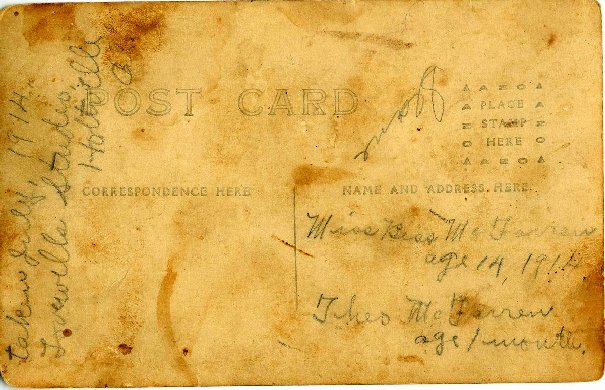 POST CARD
PLACE
STAMP
HERE
CORRESPONDENCE HERE
NAME AND ADDRESS HERE
Miss Bess McFarren
age 14, 1914
Theo McFarren
age 1 month.
taken July, 1914
Studio
Holtville